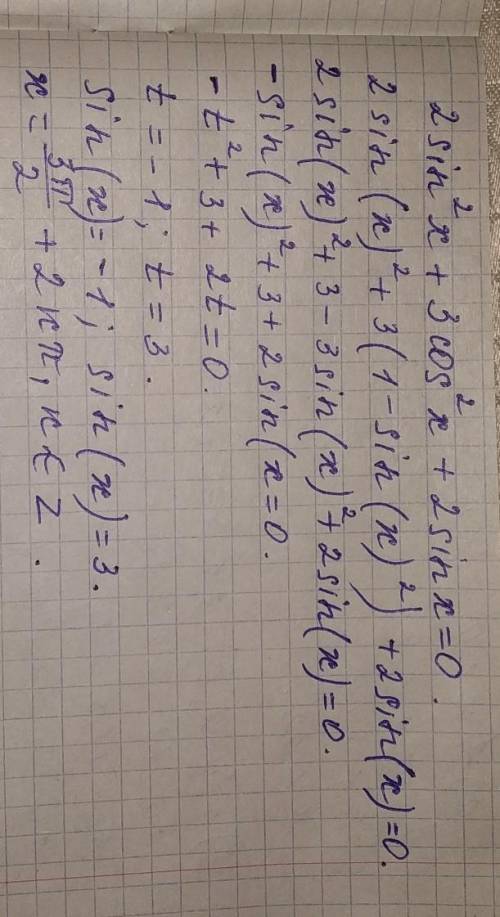 2sin²x + 3cos²x + 2sin x = 0.
2sin(x)² + 3(1 - sin(x)²) + 2sin(x) = 0.
2sin(x)² + 3 - 3sin(x)² + 2sin(x) = 0.
- sin(x)² + 3 + 2sin(x = 0.
- t² + 3 + 2t = 0.
t = - 1; t = 3.
sin(x) = - 1; sin(x) = 3.
x = 3π/2 + 2кπ, к ∈ Z.